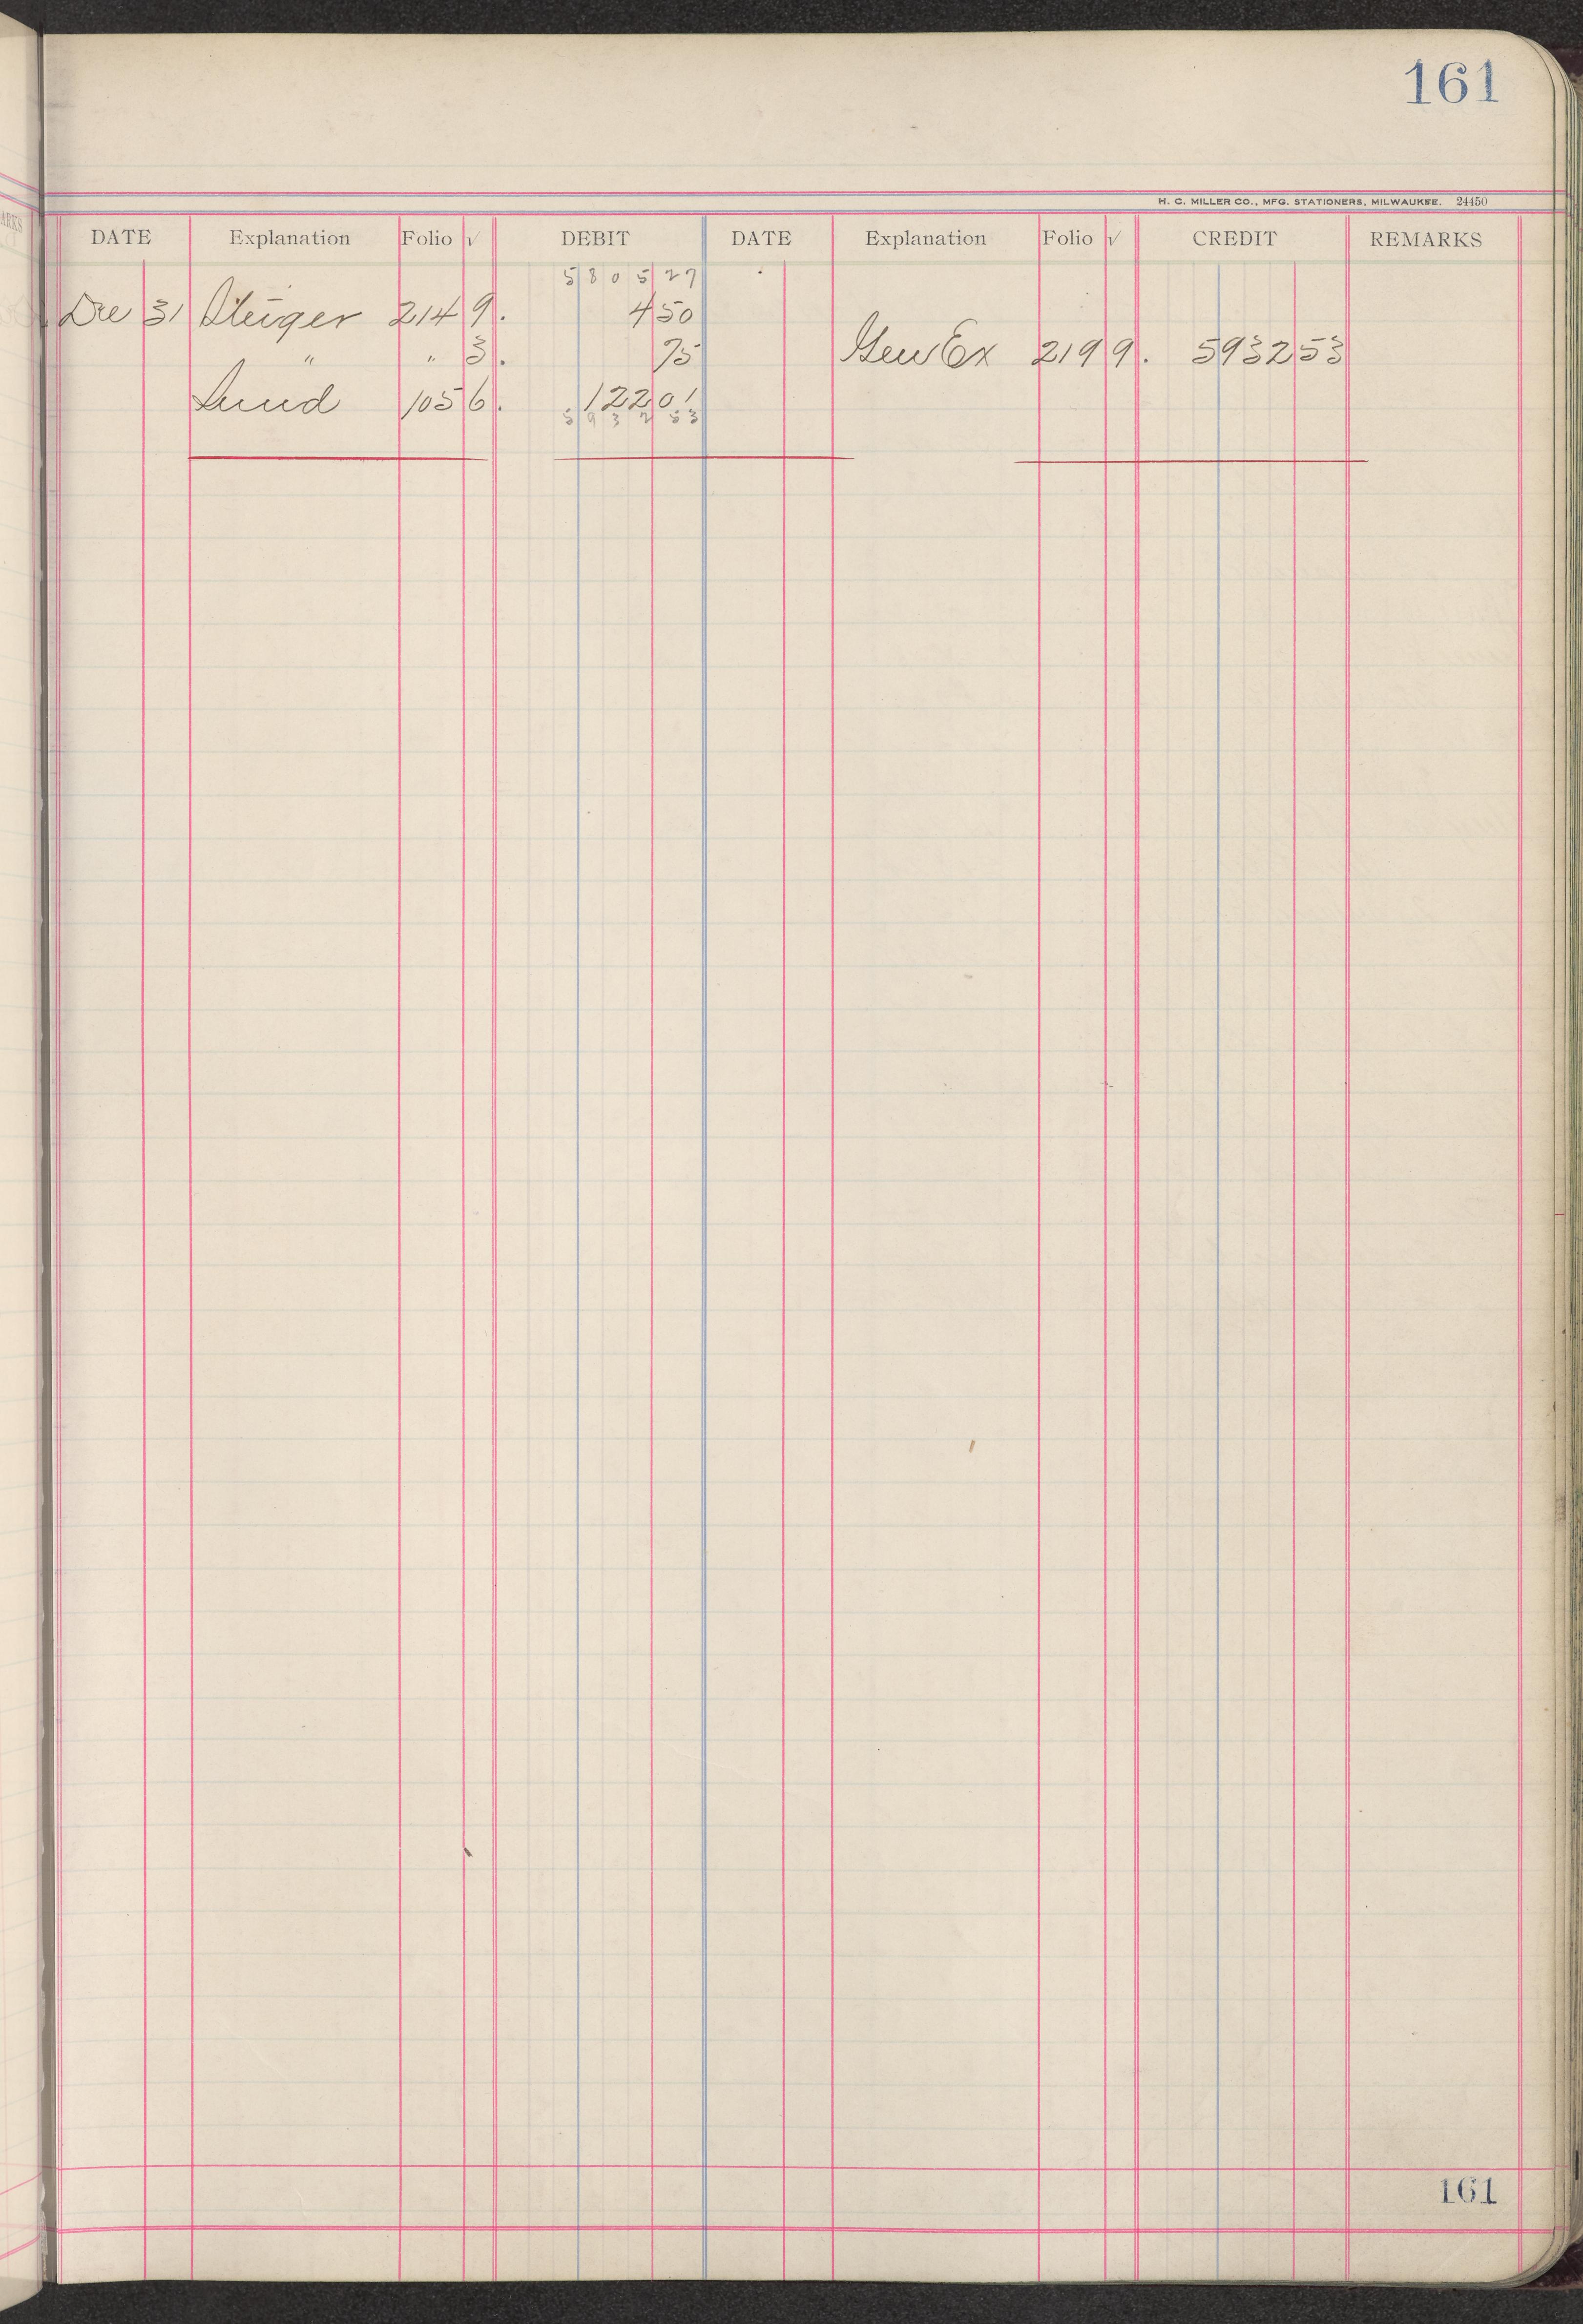 161
H. C. MILLER CO., MFG. STATIONERS, MILWAUKEE. 24450
DATE Explanation Folio √ DEBIT DATE Explanation Folio √ CREDIT REMARKS
5805 27
Dec 31 Steiger 214 9. 4 50
" " 3. 75 Gen Ex 219 9. 5932 53
Sund 105 6. 122 01
5932 53
161